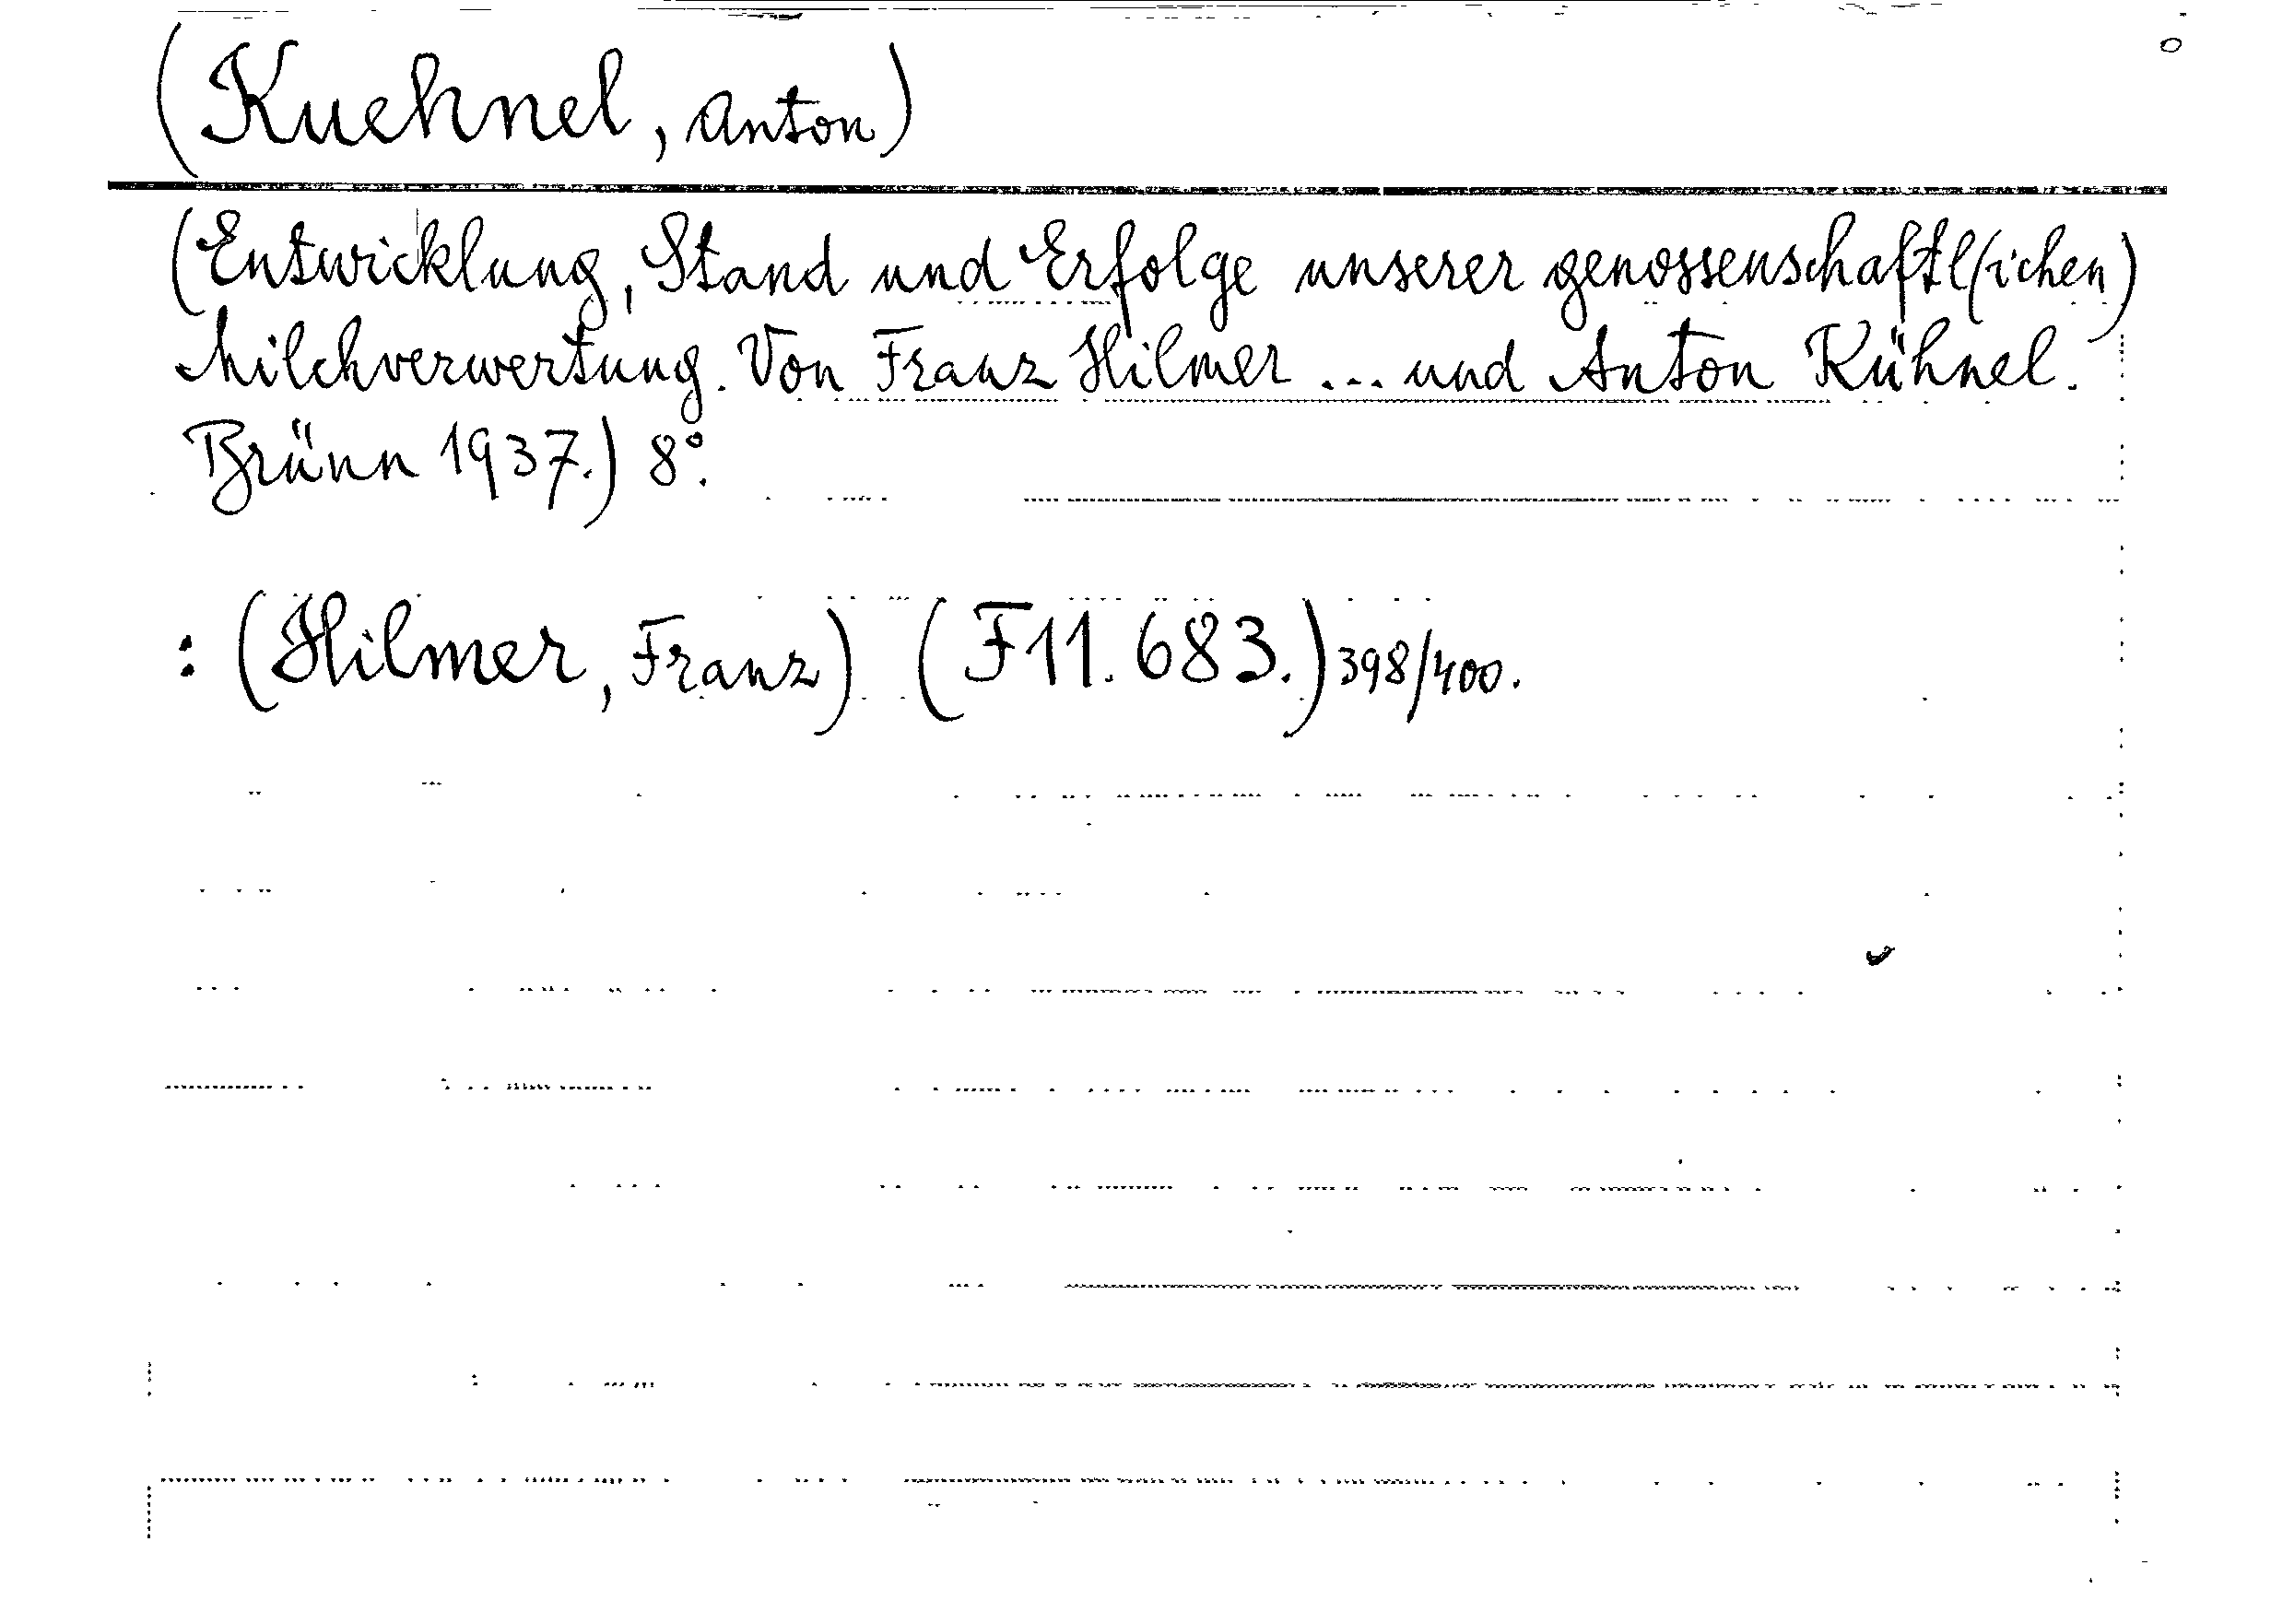 (Kuehnel, Anton)
(Entwicklung, Stand und Erfolge unserer genossenschaftl(ichen)
Milchverwertung. Von Franz Hilmer ... und Anton Kühnel.
Brünn 1937.) 8°.
: (Hilmer, Franz) (F11.683.) 398/400.